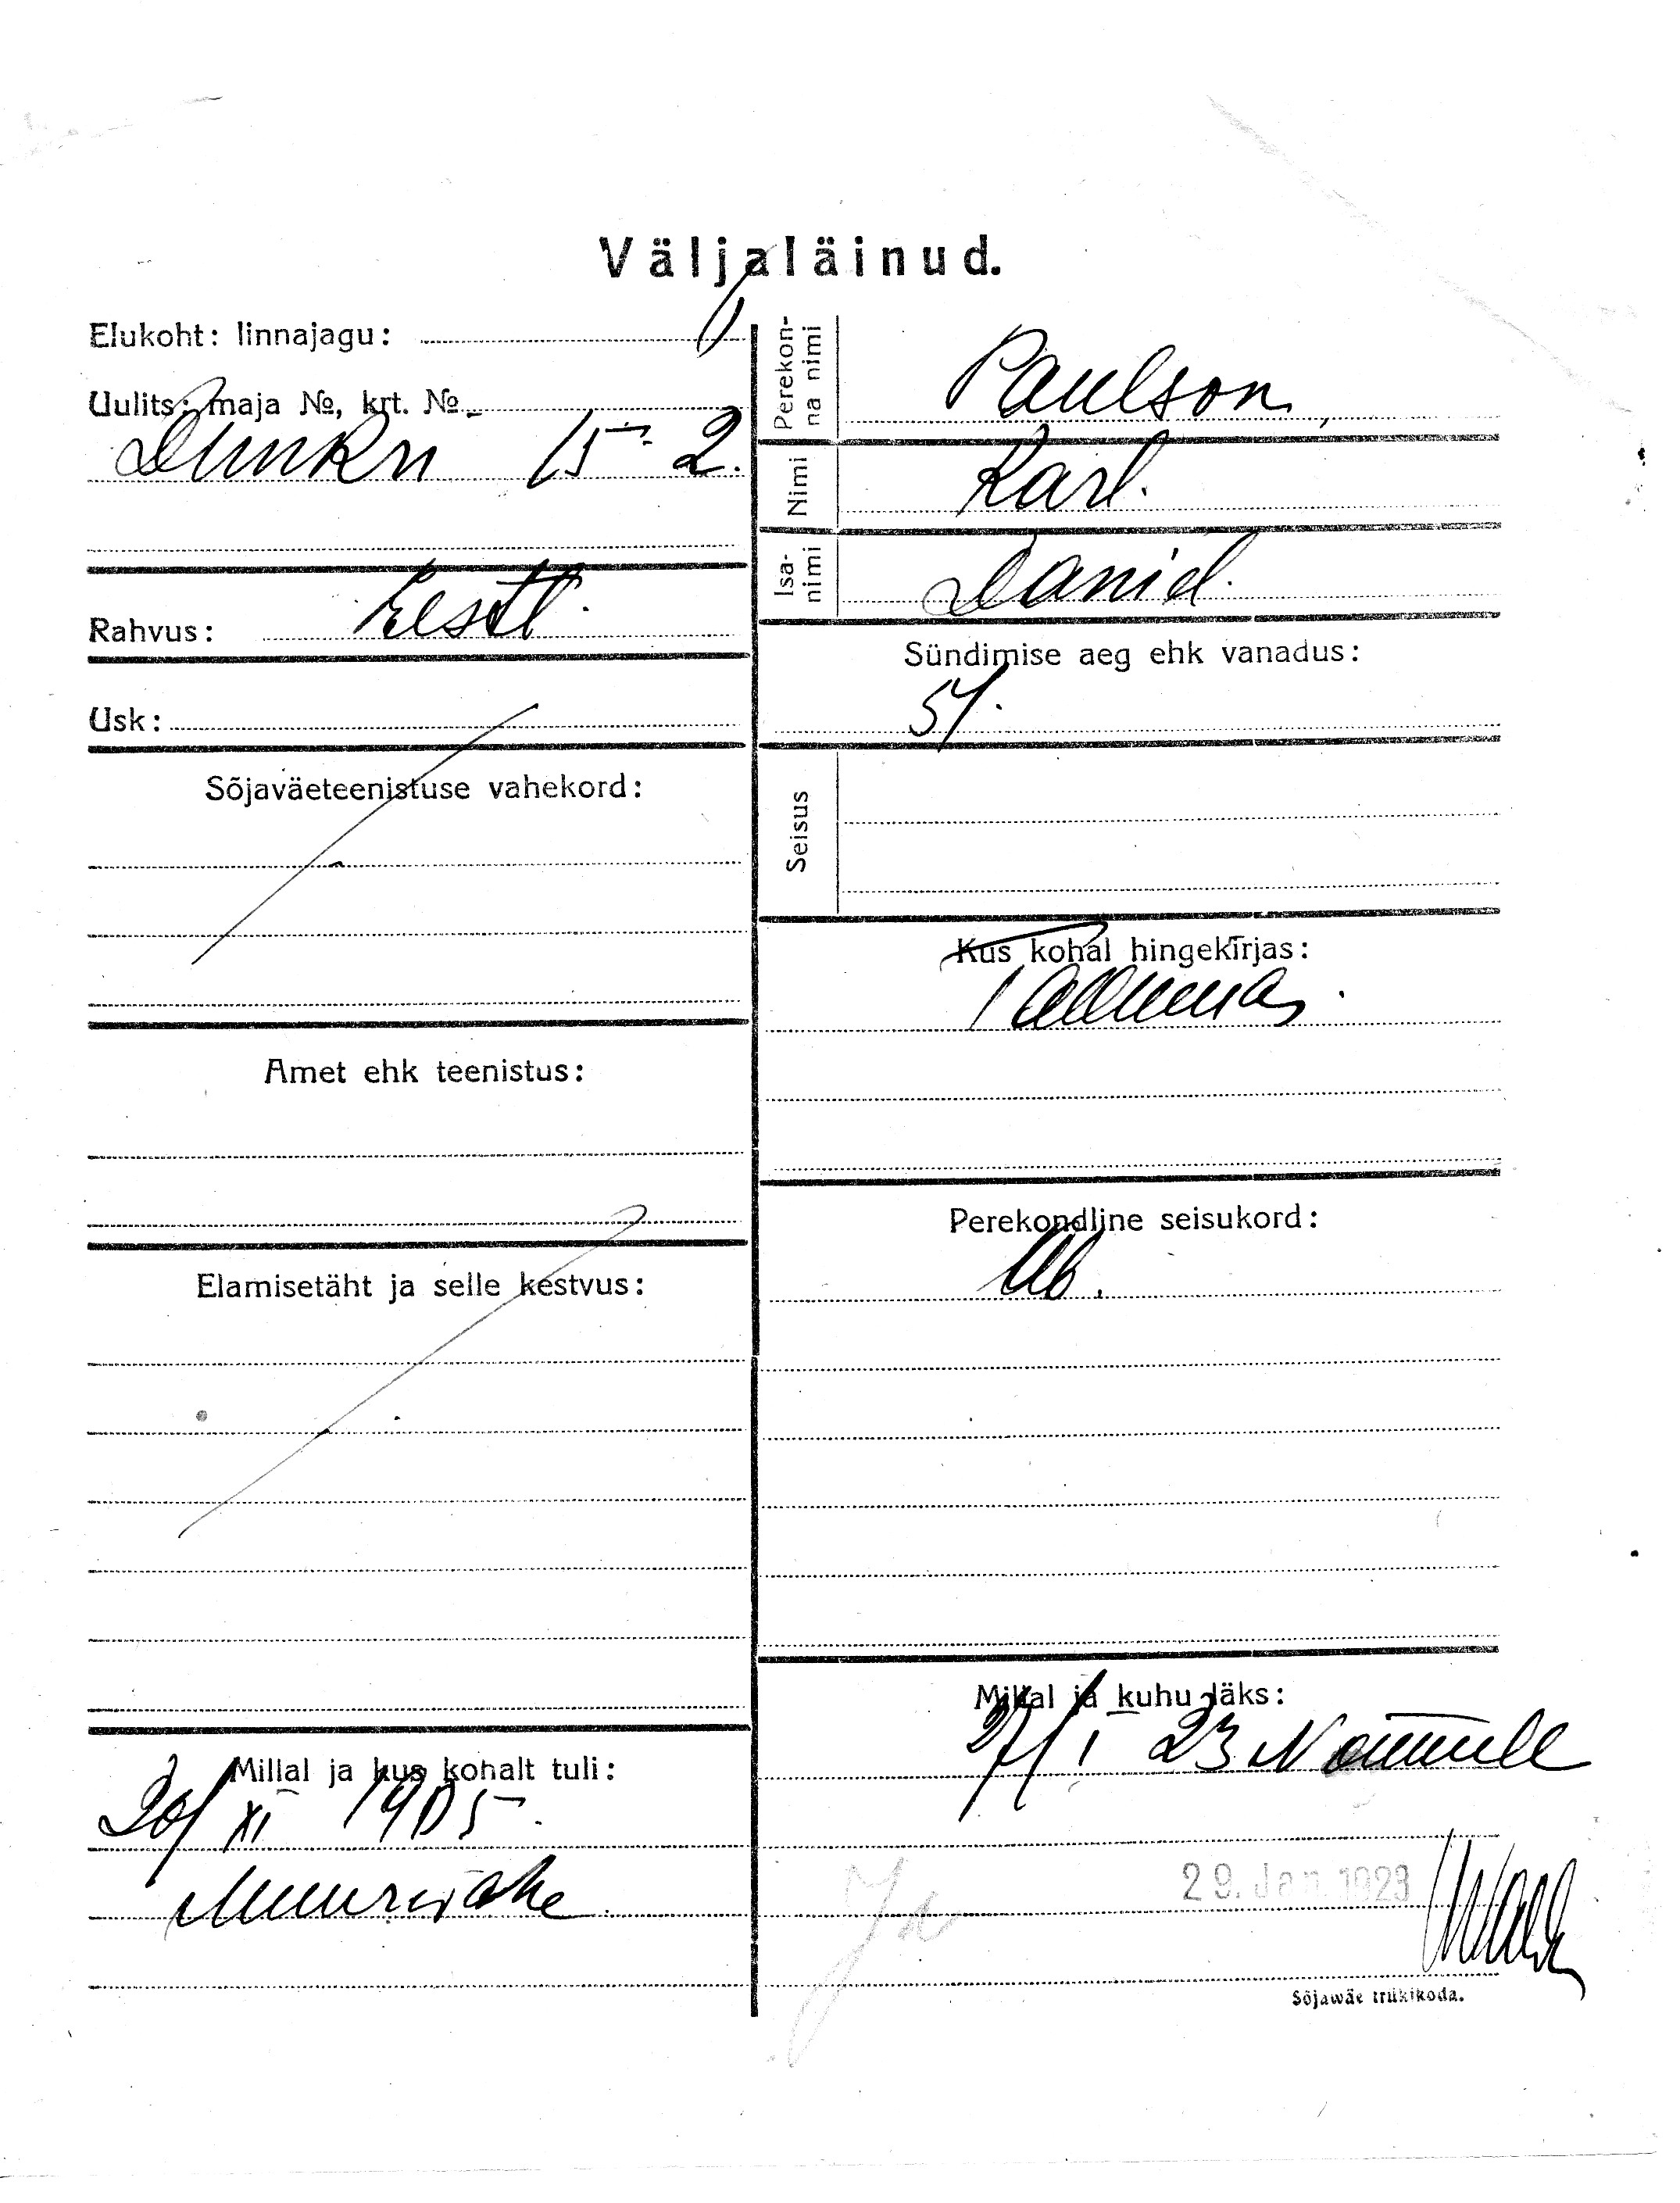 Väljaläinud.
Elukoht: linnajagu:
Uulits: maja №, krt. №
Dunkri 15-2.
Rahvus: Eestl.
Usk:
Sõjaväeteenistuse vahekord:
Amet ehk teenistus:
Elamisetäht ja selle kestvus:
Millal ja kus kohalt tuli:
20/XI 1905.
Perekonna nimi Paulson,
Nimi Karl.
Isanimi Daniel.
Sündimise aeg ehk vanadus:
Seisus
Kus kohal hingekirjas:
Tallinnas.
Perekondline seisukord:
Ab.
Millal ja kuhu läks:
27/I 23 Nõmmele
Ja
29. Jan. 1923
Sõjawäe trükikoda.